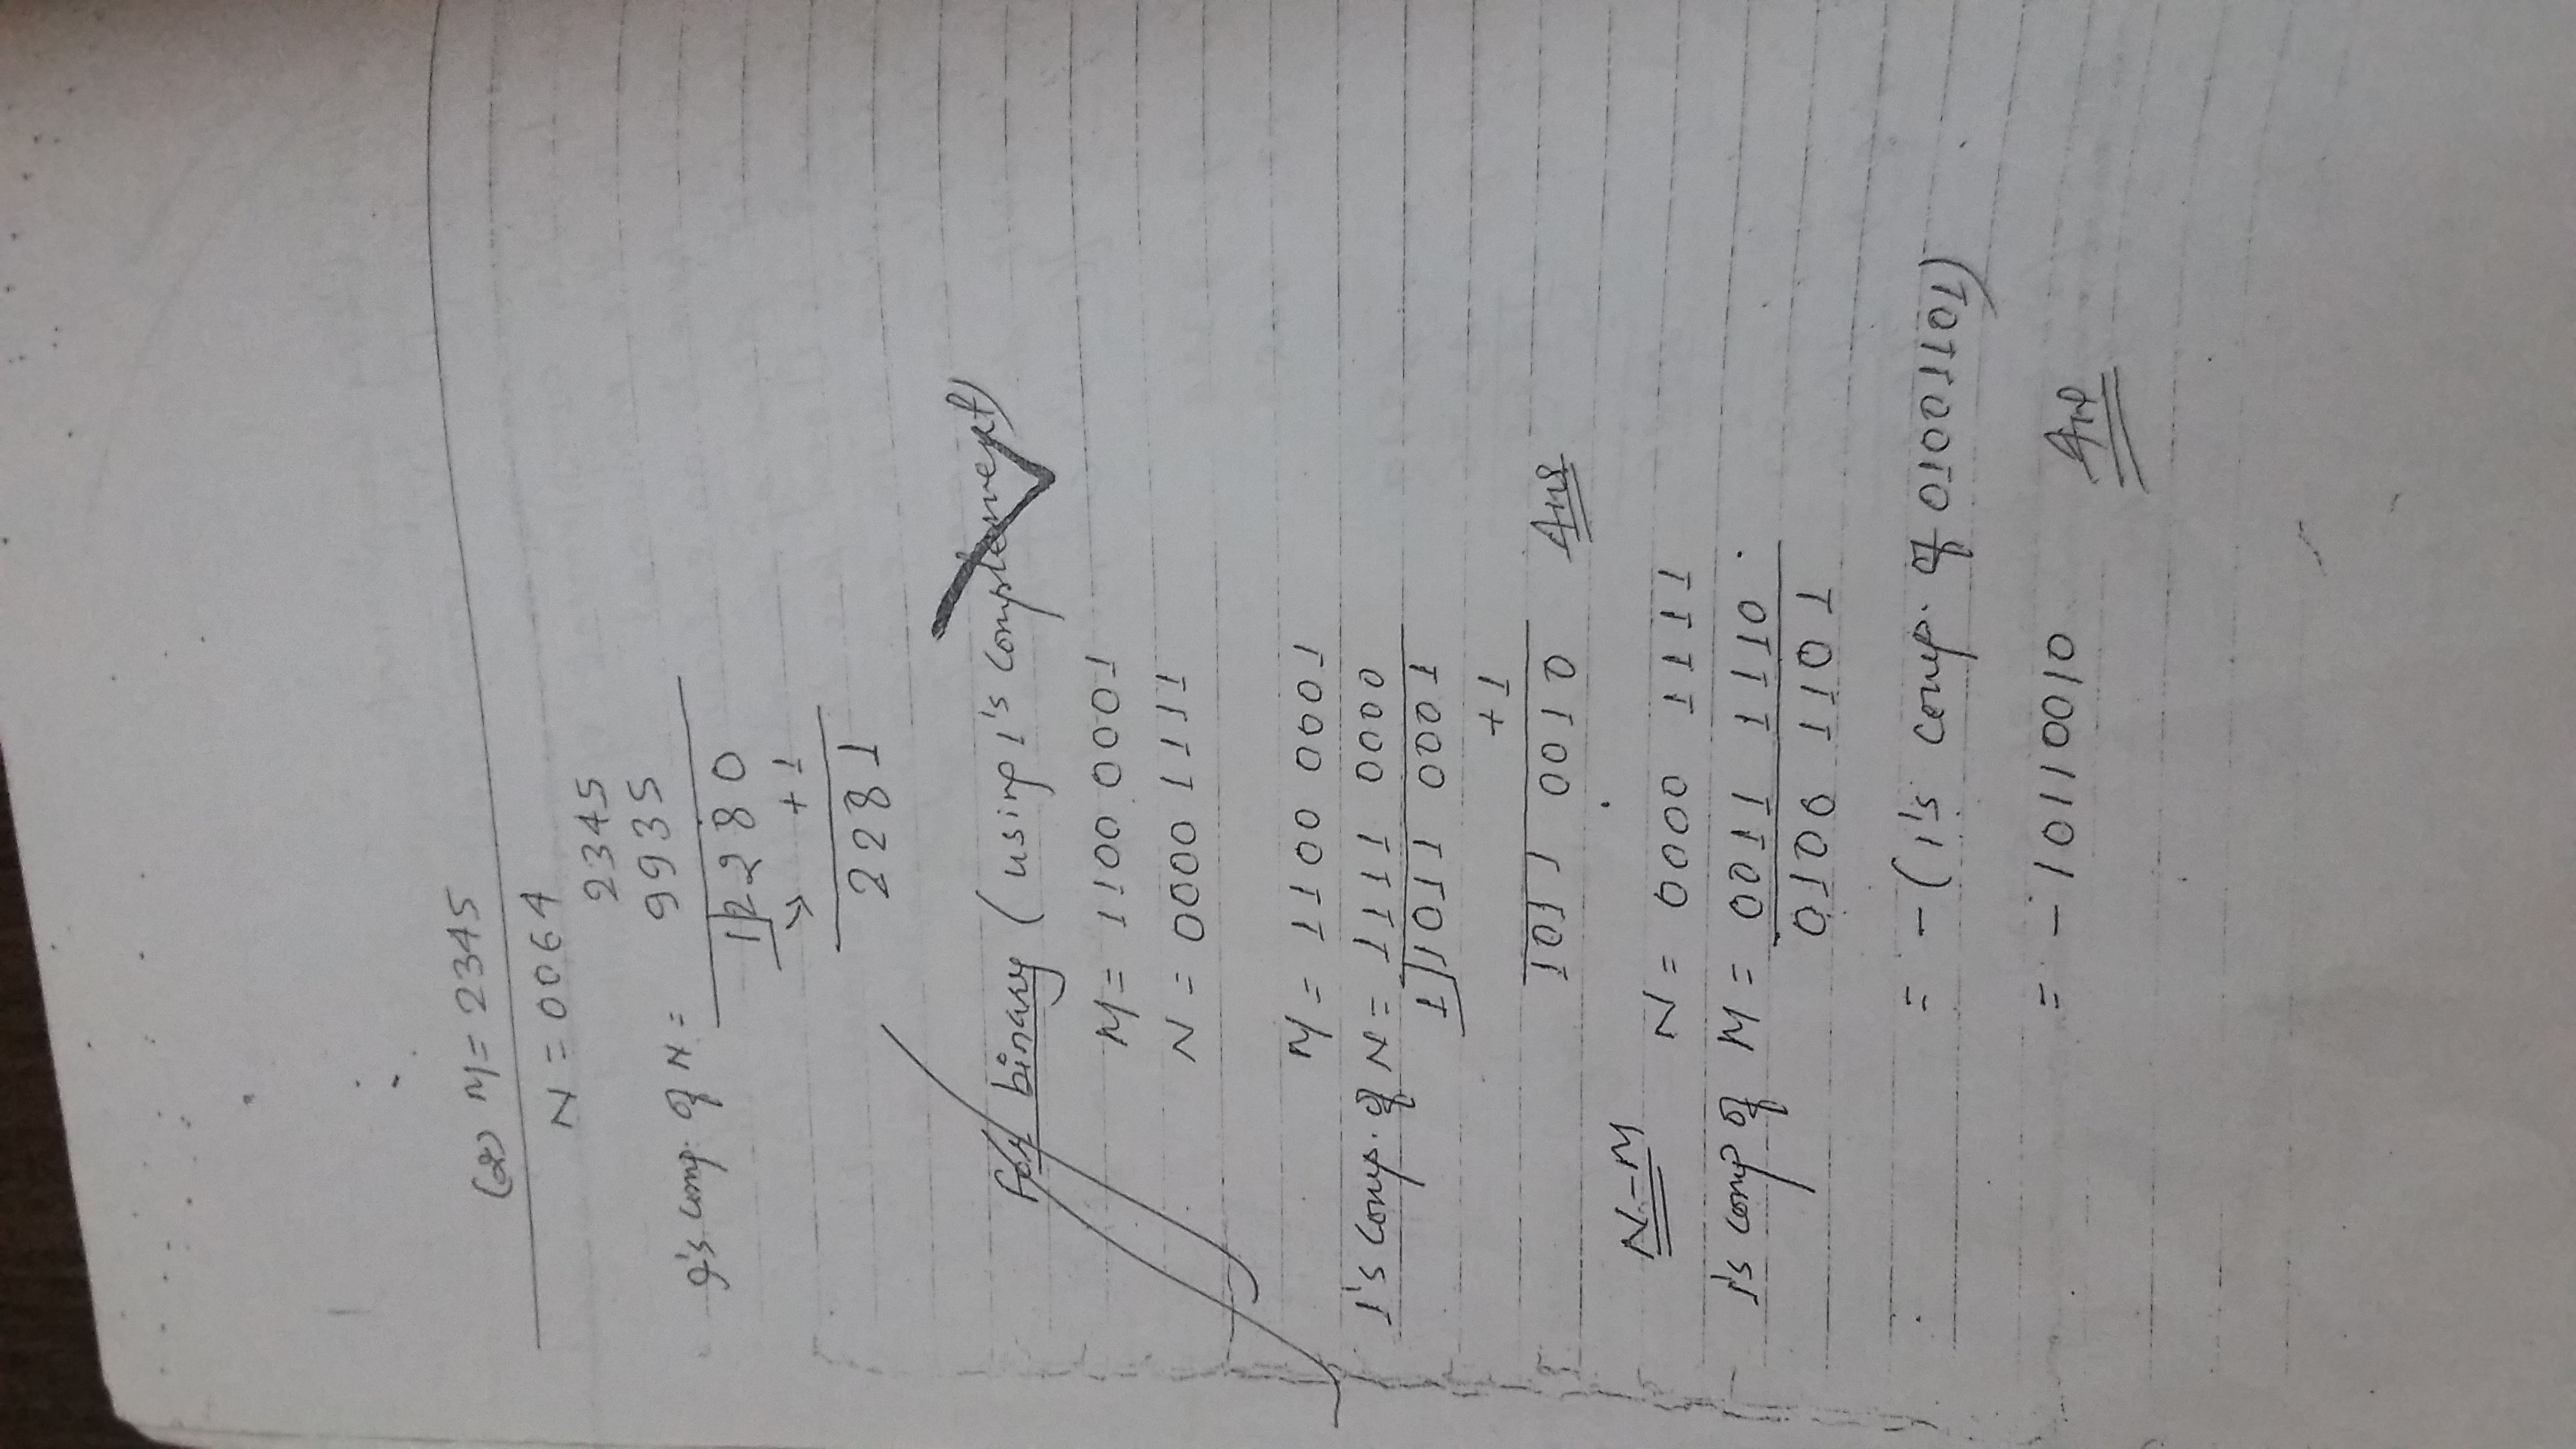 (2) M = 2345
N = 0064
2345
9's comp. of N = 9935
12280
+1
2281
For binary (using 1's complement)
M = 1100 0001
N = 0000 1111
M = 1100 0001
1's comp. of N = 1111 0000
1 1011 0001
+1
1011 0010 Ans
N-M
N = 0000 1111
1's comp of M = 0011 1110
0100 1101
= -(1's comp. of 01001101)
= -10110010 Ans